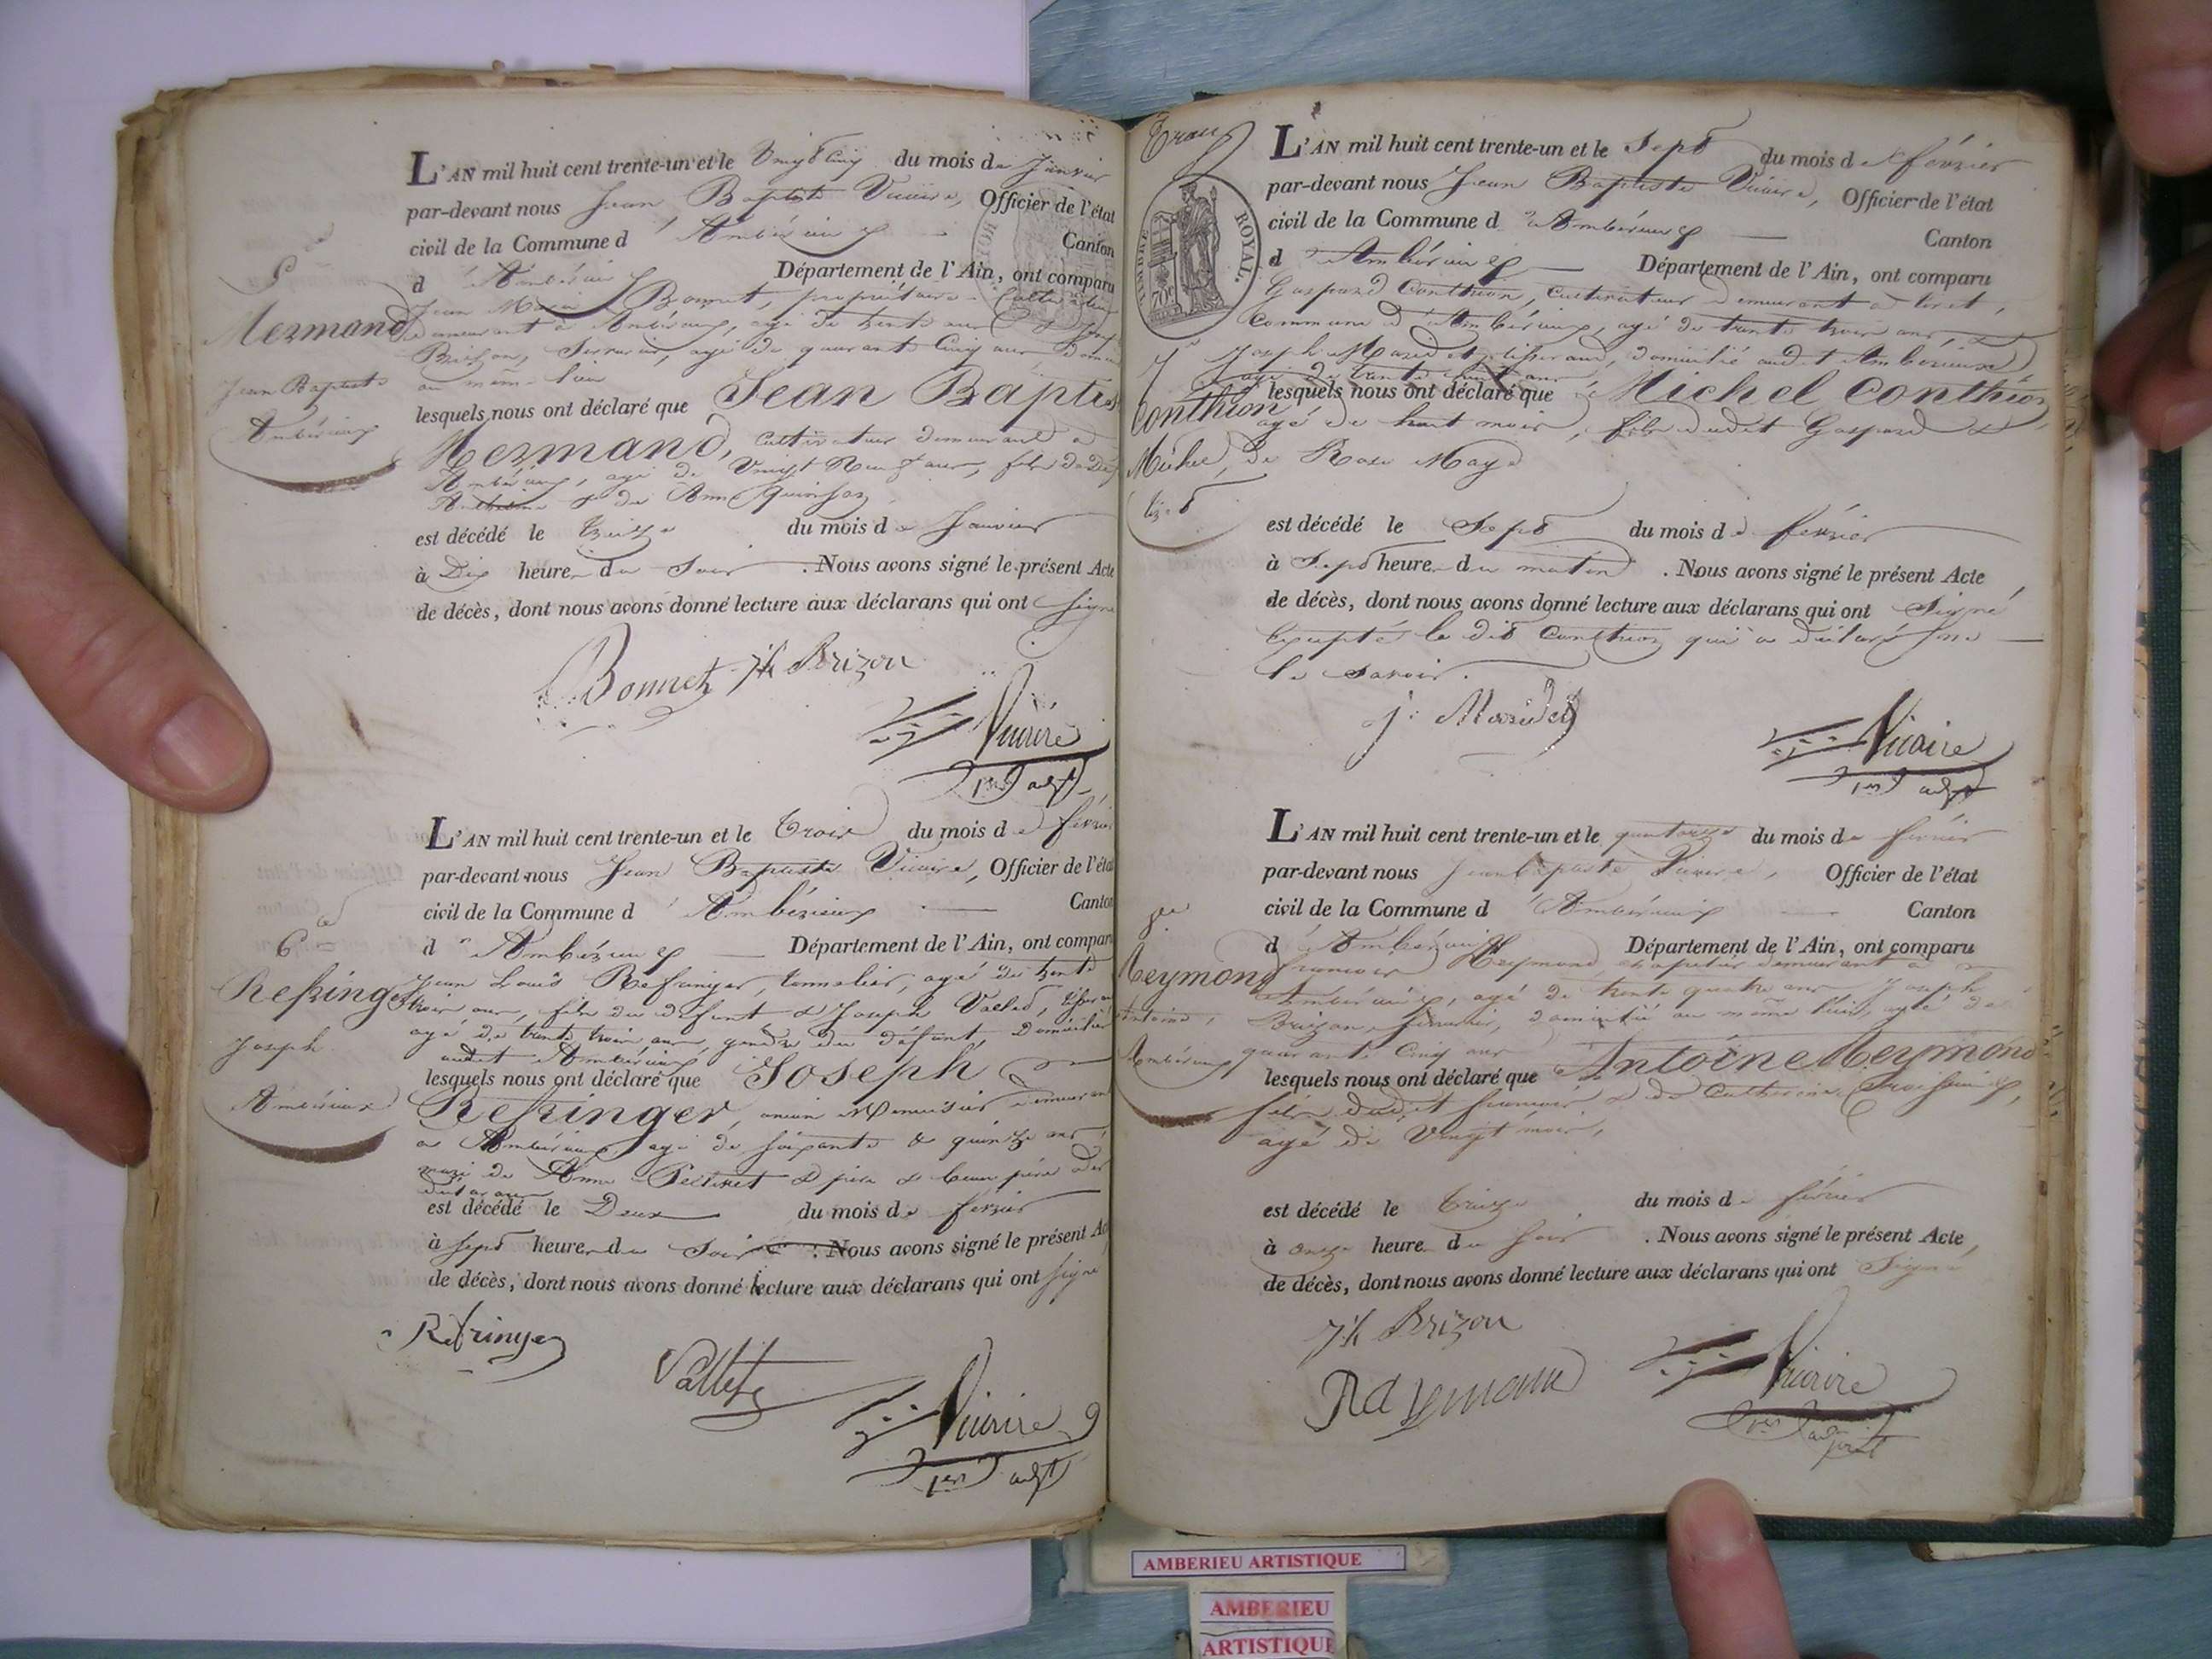 L'AN mil huit cent trente-un et le Vingt Cinq du mois de Janvier
par-devant nous Jean Baptiste Vicaire, Officier de l'état
civil de la Commune d'Ambérieux Canton
d'Ambérieux Département de l'Ain, ont comparu
Jean Marie Bonnet, propriétaire Cultivateur
demeurant à Ambérieux, agé de trente
Brizon, Serrurier, agé de quarante Cinq ans
au même lieu
lesquels nous ont déclaré que Jean Baptis
Mermand, cultivateur demeurant à
Ambérieux, agé de Vingt Neuf ans, fils de
Anthelme & de Anne Quinson
est décédé le treize du mois de Janvier
à Dix heure du Soir . Nous avons signé le présent Acte
de décès, dont nous avons donné lecture aux déclarans qui ont signé
Bonnet Jh Brizon
Vicaire
1er adjt
5
Mermand
Jean Baptiste
Ambérieux
L'AN mil huit cent trente-un et le trois du mois de février
par-devant nous Jean Baptiste Vicaire, Officier de l'état
civil de la Commune d'Ambérieux Canton
d'Ambérieux Département de l'Ain, ont comparu
Jean Louis Refringer, tonnelier, agé de trente
trois ans, fils du défunt & Joseph Vallet,
agé de trente trois ans, gendre du défunt, Domicilié
audit Ambérieux
lesquels nous ont déclaré que Joseph
Refringer, ancien Menuisier demeurant
à Ambérieux, agé de soixante & quinze ans,
mari de Anne Pelliset & père & beau père des
déclarans
est décédé le Deux du mois de février
à sept heure du Soir . Nous avons signé le présent Ac
de décès, dont nous avons donné lecture aux déclarans qui ont signé
Refringer
Vallet
Vicaire
1er adjt
6
Refringer
Joseph
Ambérieux
TIMBRE ROYAL.
70c
L'AN mil huit cent trente-un et le Sept du mois de février
par-devant nous Jean Baptiste Vicaire, Officier de l'état
civil de la Commune d'Ambérieux Canton
d'Ambérieux Département de l'Ain, ont comparu
Gaspard Conthion, cultivateur demeurant à tiret,
Commune d'Ambérieux, agé de trente trois ans, &
Joseph Maridet, tisserand, domicilié audit Ambérieux
agé de trente
lesquels nous ont déclaré que Michel Conthion
agé de huit mois, fils dudit Gaspard &
de Rose Maye
est décédé le Sept du mois de février
à Sept heure du matin . Nous avons signé le présent Acte
de décès, dont nous avons donné lecture aux déclarans qui ont Signé
Excepté le dit Conthion qui a déclaré ne
le savoir.
j. Maridet
Vicaire
1er adjt
7
Conthion
Michel
tiret
L'AN mil huit cent trente-un et le quatorze du mois de février
par-devant nous Jean Baptiste Vicaire, Officier de l'état
civil de la Commune d'Ambérieux Canton
d'Ambérieux Département de l'Ain, ont comparu
francois Reymond, demeurant à
Ambérieux, agé de trente quatre ans, Joseph
Brizon, serrurier, domicilié au même lieu, agé de
quarante Cinq ans
lesquels nous ont déclaré que Antoine Reymond
fils dudit francois & de Catherine
agé de Vingt mois,
est décédé le treize du mois de février
à onze heure du soir . Nous avons signé le présent Acte,
de décès, dont nous avons donné lecture aux déclarans qui ont Signé
Jh Brizon
Vicaire
8
Reymond
Antoine,
Ambérieux
AMBERIEU ARTISTIQUE
AMBERIEU
ARTISTIQUE